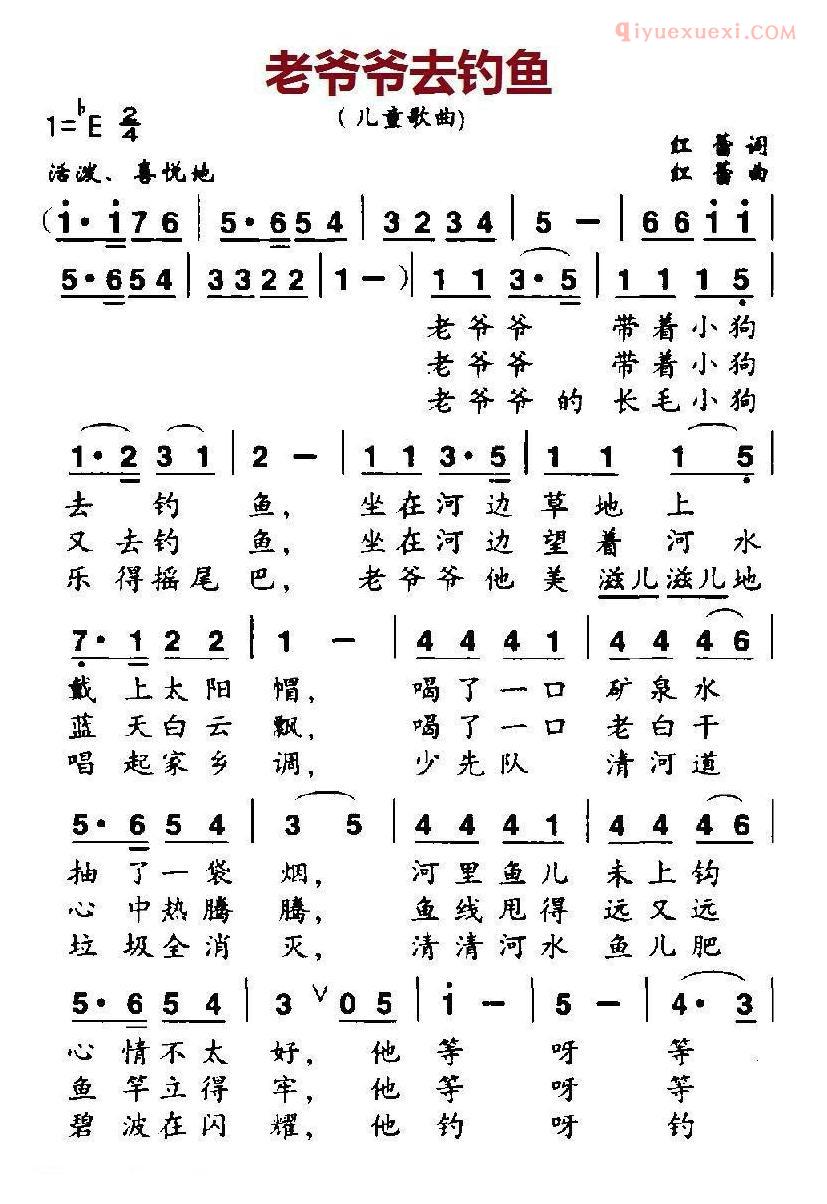 qiyuexuexi.com
老爷爷去钓鱼
(儿童歌曲)
1=♭E 2/4
红蕾 词
活泼、喜悦地
红蕾 曲
(i·i76 | 5·654 | 3234 | 5 – | 66ii |
5·654 | 3322 | 1 –) | 1 1 3·5 | 1 1 1 5 |
老爷爷 带着小狗
老爷爷 带着小狗
老爷爷的 长毛小狗
1·2 3 1 | 2 – | 1 1 3·5 | 1 1 1 5 |
去钓鱼, 坐在河边草地上
又去钓鱼, 坐在河边望着河水
乐得摇尾巴, 老爷爷他美滋儿滋儿地
7·1 2 2 | 1 – | 4 4 4 1 | 4 4 4 6 |
戴上太阳帽, 喝了一口矿泉水
蓝天白云飘, 喝了一口老白干
唱起家乡调, 少先队 清河道
5·6 5 4 | 3 5 | 4 4 4 1 | 4 4 4 6 |
抽了一袋烟, 河里鱼儿未上钩
心中热腾腾, 鱼线甩得远又远
垃圾全消灭, 清清河水鱼儿肥
5·6 5 4 | 3 ∨ 0 5 | i – | 5 – | 4· 3 |
心情不太好, 他等呀等
鱼竿立得牢, 他等呀等
碧波在闪耀, 他钓呀钓